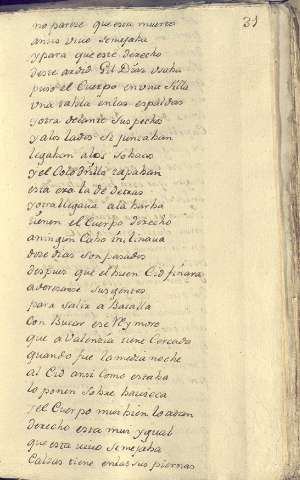 31
no parese que esta muerto
antes vivo semejaba
y para que este derecho
deste ardid Gil Diaz usaba
puso el Cuerpo en una silla
una tabla en las espaldas
y otra delante sus pechos
y a los lados se juntaban
llegaban a los sobacos
y el Colodrillo tapaban
esta era la de detras
y otra llegaua a la barba
tienen el Cuerpo derecho
a ningun Cabo inclinaua
dose dias son pasados
despues que el buen Cid finara
aderesanse sus gentes
para salir a Batalla
Con Bucar ese Rey moro
que a Valencia tiene Cercada
quando fue la media noche
al Cid ansi Como estaba
lo ponen sobre babieca
y el Cuerpo mui bien lo atan
derecho esta mui ygual
que esta vivo semejaba
Calzas tiene en las sus piernas